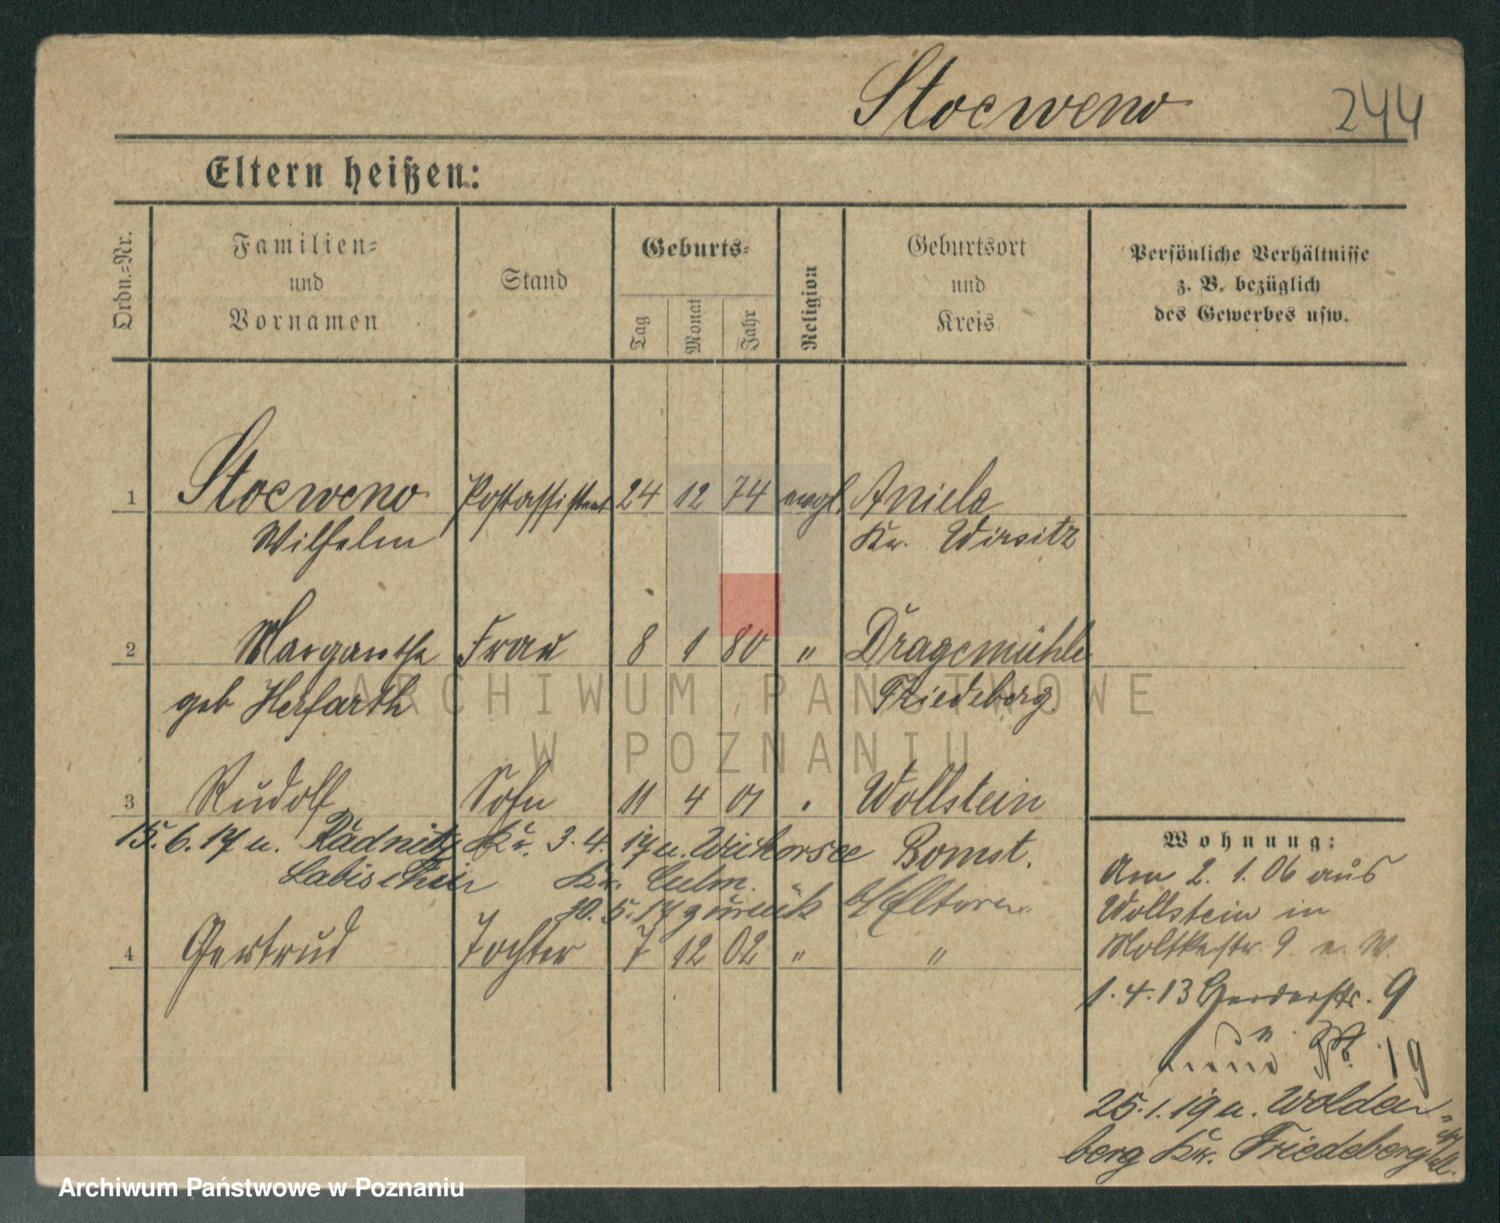 Stoeweno 244
Eltern heißen:
Ordn.=Nr.
Familien=
und
Vornamen
Stand
Geburts=
Tag
Monat
Jahr
Religion
Geburtsort
und
Kreis
Persönliche Verhältnisse
z. B. bezüglich
des Gewerbes usw.
1 Stoeweno Postassistent 24 12 74 evgl. Aniela
Wilhelm Kr. Wirsitz
2 Margarethe Frau 8 1 80 " Dragemühle
geb Herfarth Friedeberg.
3 Rudolf Sohn 11 4 01 " Wollstein
15.6.17 n. Kr. 3.4.17 n. Bomst.
Labischin Kr. Culm.
30.5.17 zurück Eltern
4 Gertrud Tochter 7 12 02 " "
Wohnung:
Am 2. 1. 06 aus
Wollstein in
Moltkestr. 9. n. W.
1.4.13 Herderstr. 9
19
25.1.19 n. Wolden-
berg Kr. Friedeberg
ARCHIWUM PAŃSTWOWE
W POZNANIU
Archiwum Państwowe w Poznaniu